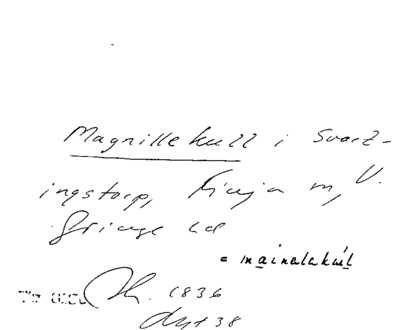 Magnillekull i Svart-
ingstorp, Finja sn, V.
Göinge hd
= mainalakúl
1836
38